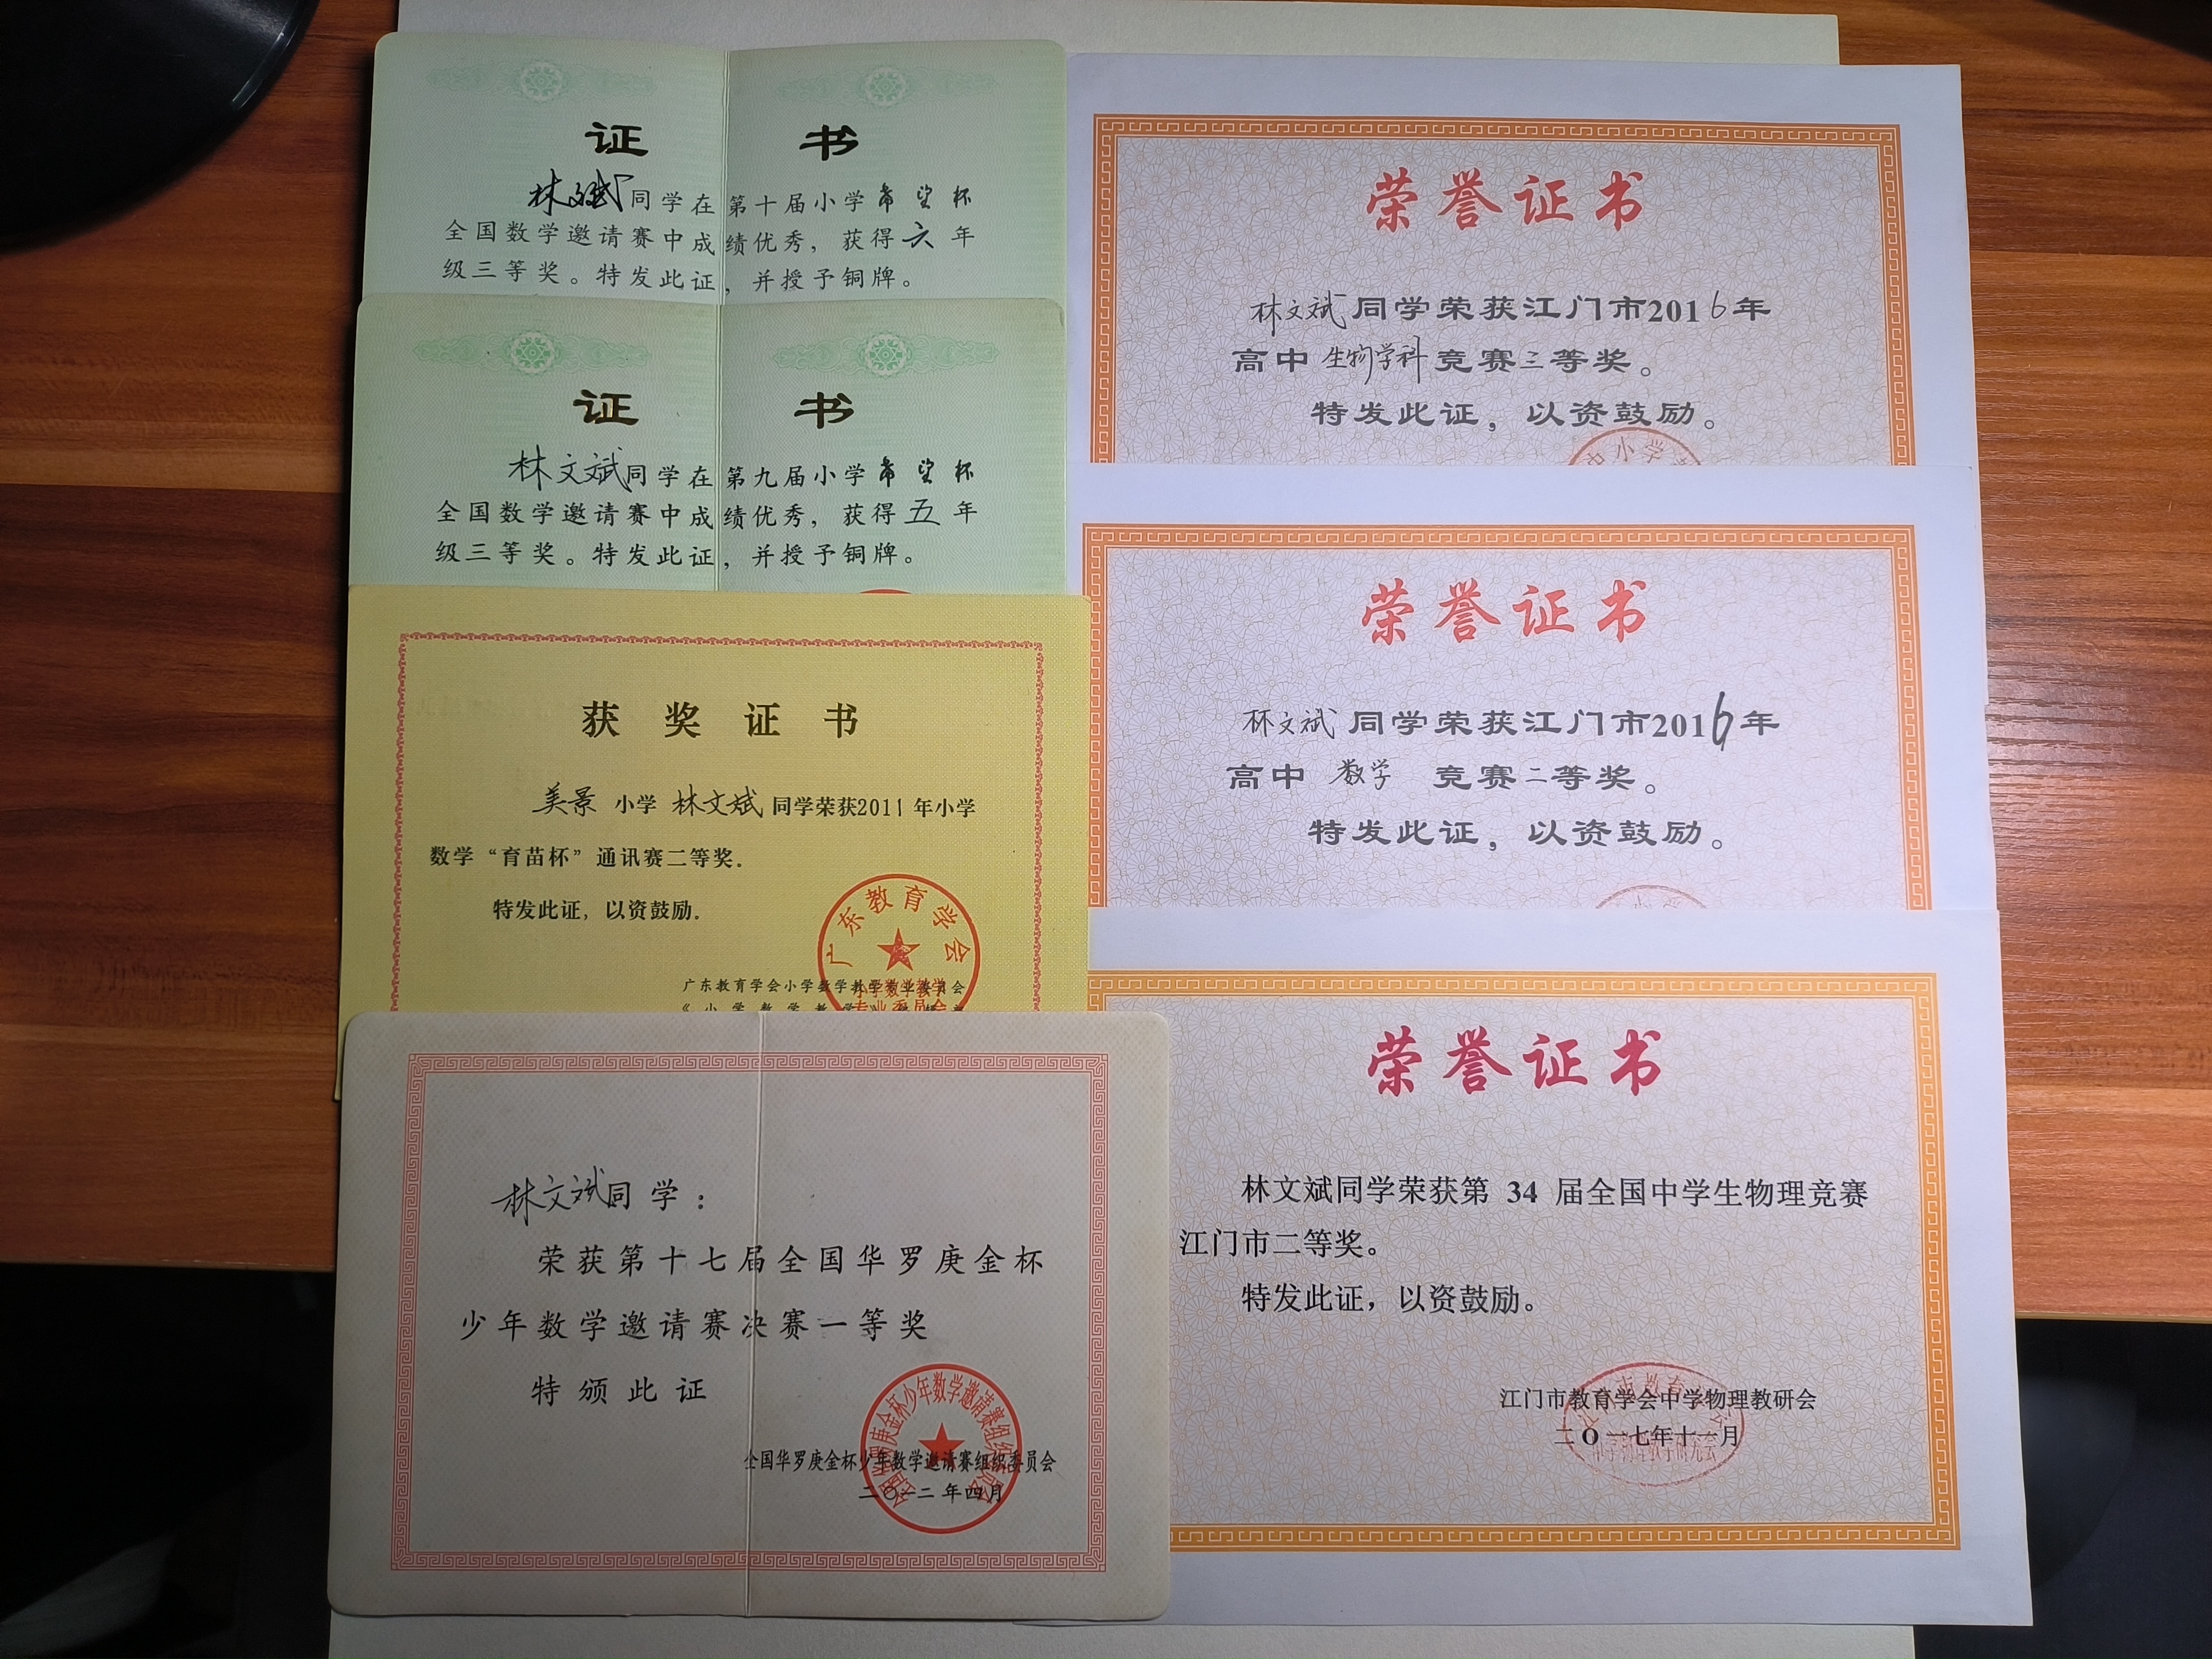 证 书
林文斌同学在第十届小学希望杯
全国数学邀请赛中成绩优秀，获得六年
级三等奖。特发此证，并授予铜牌。
证 书
林文斌同学在第九届小学希望杯
全国数学邀请赛中成绩优秀，获得五年
级三等奖。特发此证，并授予铜牌。
获奖证书
美景 小学 林文斌 同学荣获2011年小学
数学“育苗杯”通讯赛二等奖．
特发此证，以资鼓励．
广东教育学会
广东教育学会小学数学教学专业委员会
林文斌同学：
荣获第十七届全国华罗庚金杯
少年数学邀请赛决赛一等奖
特颁此证
全国华罗庚金杯少年数学邀请赛组织委员会
二〇一二年四月
全国华罗庚金杯少年数学邀请赛组织委员会
荣誉证书
林文斌同学荣获江门市2016年
高中生物学科竞赛三等奖。
特发此证，以资鼓励。
中小学
荣誉证书
林文斌同学荣获江门市2016年
高中 数学 竞赛二等奖。
特发此证，以资鼓励。
荣誉证书
林文斌同学荣获第 34 届全国中学生物理竞赛
江门市二等奖。
特发此证，以资鼓励。
江门市教育学会中学物理教研会
二O一七年十一月